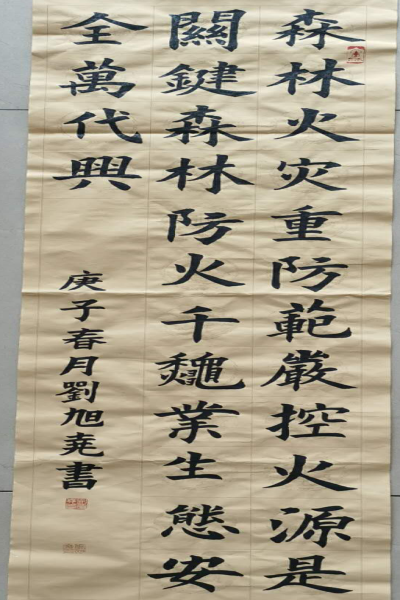 森林火灾重防範嚴控火源是
關鍵森林防火千龝業生態安
全萬代興
庚子春月劉旭堯書